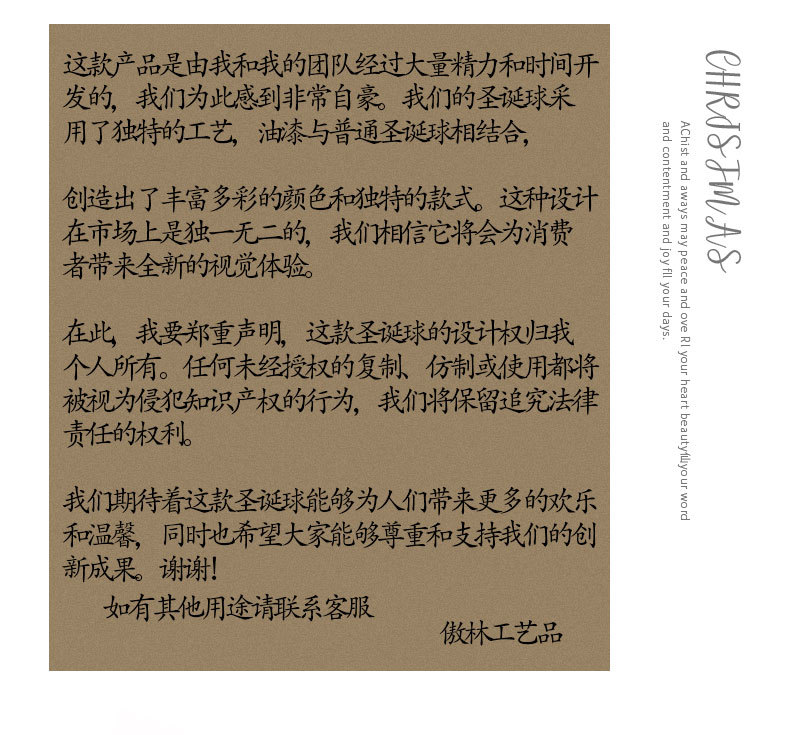 这款产品是由我和我的团队经过大量精力和时间开
发的，我们为此感到非常自豪。我们的圣诞球采
用了独特的工艺，油漆与普通圣诞球相结合，
创造出了丰富多彩的颜色和独特的款式。这种设计
在市场上是独一无二的，我们相信它将会为消费
者带来全新的视觉体验。
在此，我要郑重声明，这款圣诞球的设计权归我
个人所有。任何未经授权的复制、仿制或使用都将
被视为侵犯知识产权的行为，我们将保留追究法律
责任的权利。
我们期待着这款圣诞球能够为人们带来更多的欢乐
和温馨，同时也希望大家能够尊重和支持我们的创
新成果。谢谢！
如有其他用途请联系客服
傲林工艺品
CHRISTMAS
AChist and aways may peace and ove RI your heart beauty your word
and contentment and joy fll your days.